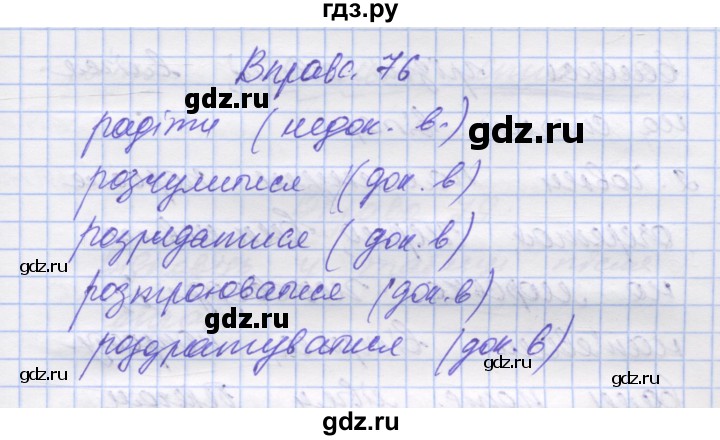 гдз.ру
Вправа 76
gdz.ru
радіти (недок. в.)
gdz.ru
розчулитися (док. в)
gdz.ru
розридатися (док. в)
gdz.ru
розкроюватися (док. в)
роздратуватися (док. в)
gdz.ru
gdz.ru
gdz.ru
gdz.ru